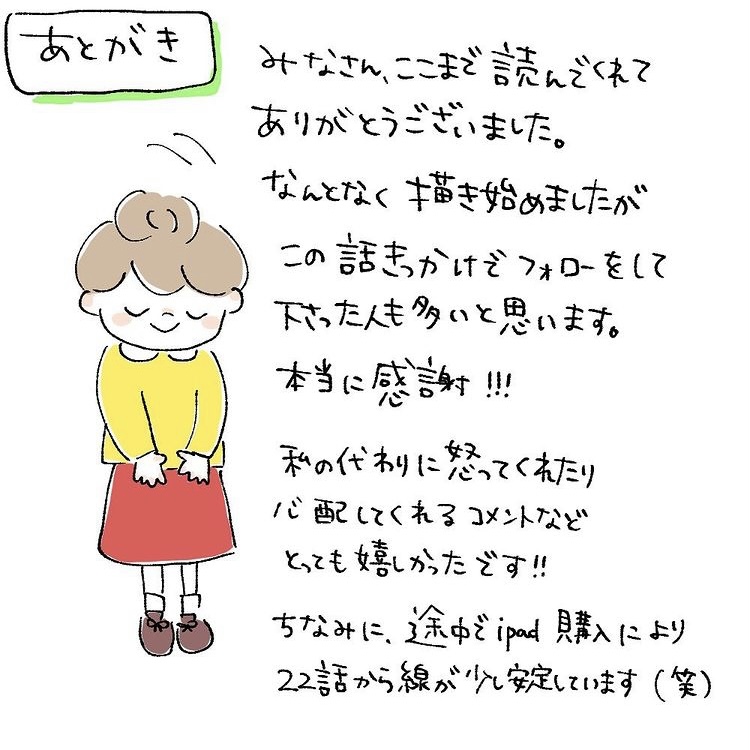 あとがき
みなさん、ここまで読んでくれて
ありがとうございました。
なんとなく描き始めましたが
この話きっかけでフォローをして
下さった人も多いと思います。
本当に感謝!!!
私の代わりに怒ってくれたり
心配してくれるコメントなど
とっても嬉しかったです!!
ちなみに、途中でipad購入により
22話から線が少し安定しています(笑)